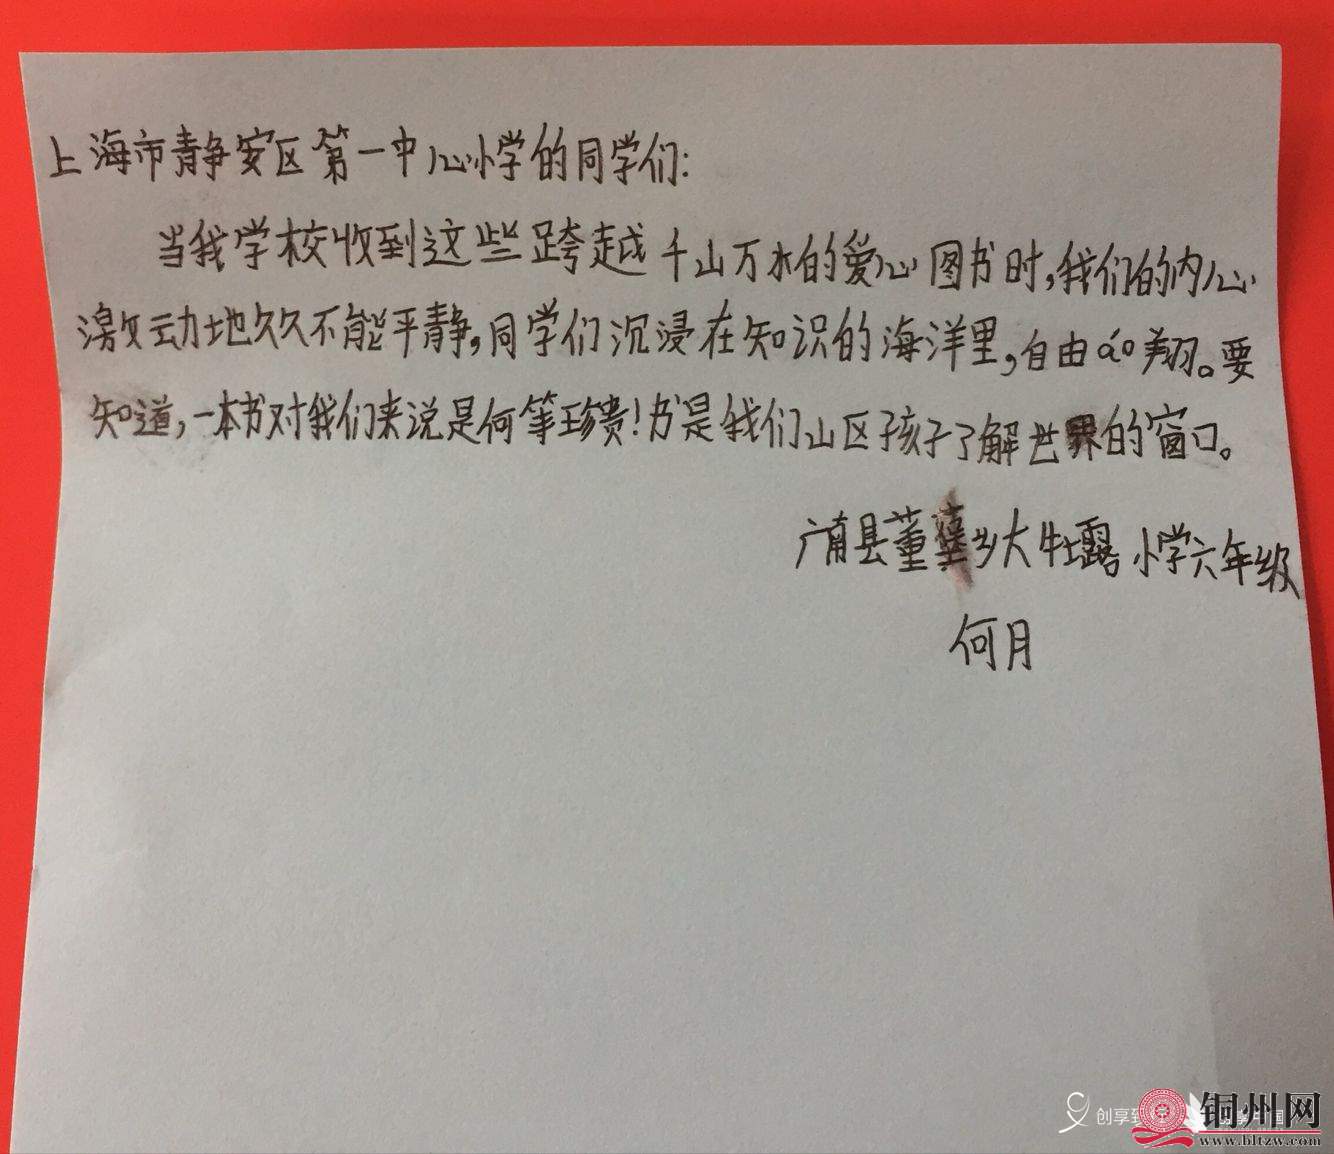 上海市静安区第一中心小学的同学们:
当我学校收到这些跨越千山万水的爱心图书时,我们的内心
激动地久久不能平静,同学们沉浸在知识的海洋里,自由的翔。要
知道,一本书对我们来说是何等珍贵!书是我们山区孩子了解世界的窗口。
广南县董堡乡大牡露小学六年级
何月
创享
铜州网
www.bltzw.com